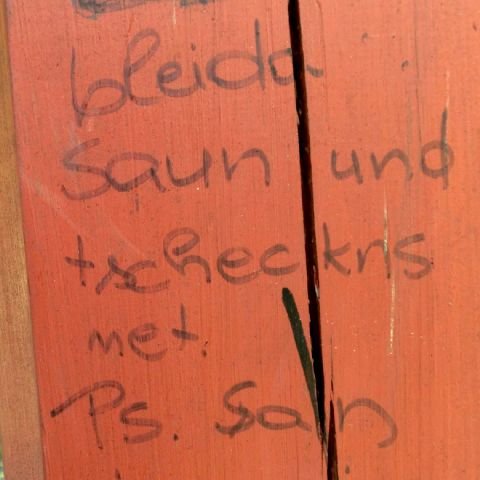 bleida
saun und
tscheckns
met.
Ps. San